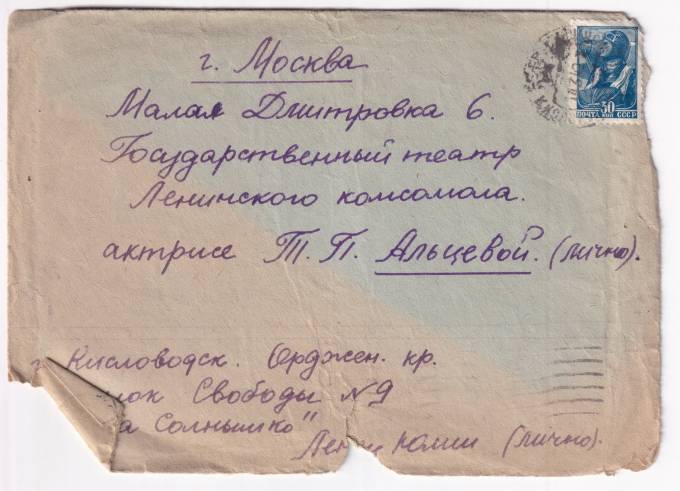 г. Москва
Малая Дмитровка 6.
Государственный театр
Ленинского комсомола.
актрисе Т. П. Альцевой. (лично).
30
ПОЧТА СССР
Кисловодск. Орджон. кр.
Свободы № 9
Солнышко"
(лично).